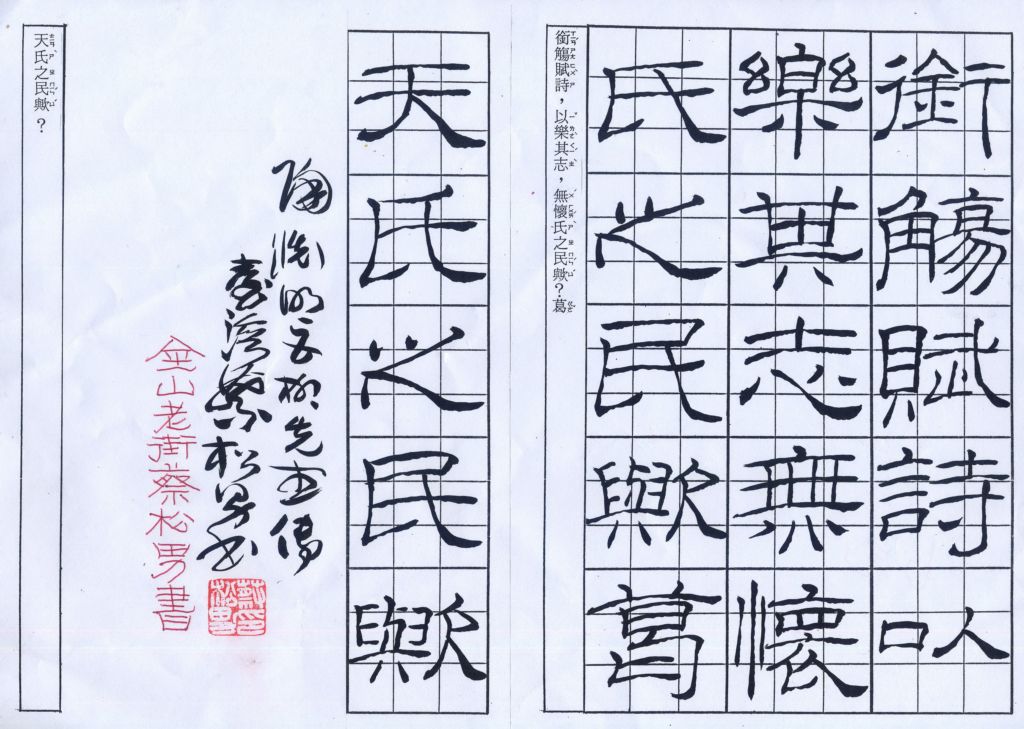 銜觴賦詩以
樂其志無懷
氏之民歟葛
銜觴賦詩，以樂其志，無懷氏之民歟？葛
天氏之民歟
陶淵明五柳先生傳
臺灣蔡松男書
蔡印松男
金山老街蔡松男書
天氏之民歟？